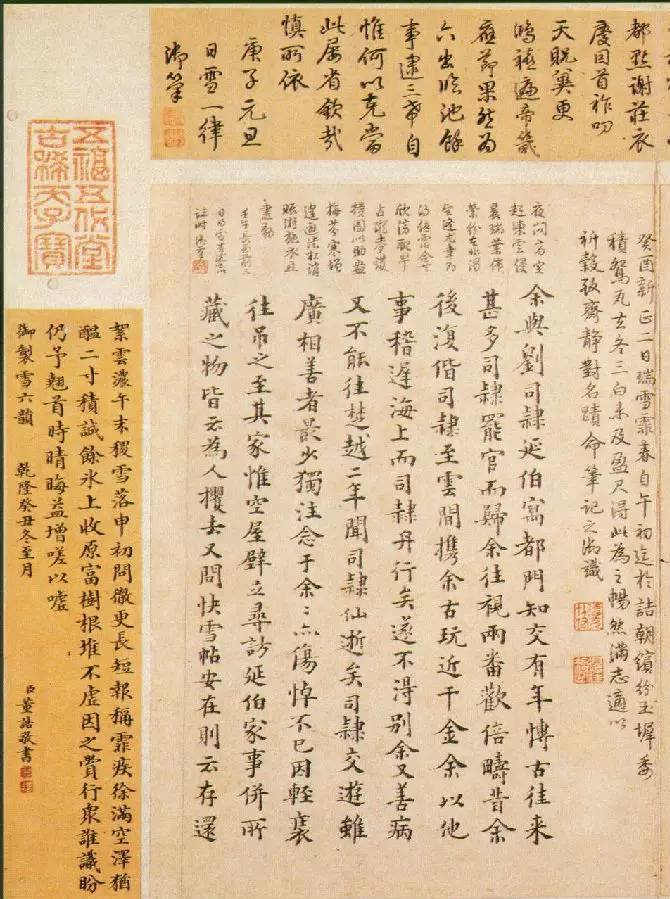 都點謝莊衣
度因首祚叨
天貺奠更
鴻禧遍帝畿
應節果然為
六出臨池餘
事逮三希自
惟何以克當
此屢省欽哉
慎所依
庚子元旦
日雪一律
御筆
五福五代堂
古稀天子寶
癸酉新正二日瑞雪霏春自午初迄於詰朝繽紛玉墀委
積鴛瓦去冬三白未及盈尺得此為之暢然滿志適以
祈穀致齋靜對名蹟命筆記之御識
夜問
起凍雲優
余與劉司隸延伯寓都門知交有年博古往來
甚多司隸罷官而歸余往視兩番歡倍疇昔余
後復偕司隸至雲間攜余古玩近千金余以他
事稽遲海上而司隸舟行矣遂不得別余又善病
又不能往楚越二年聞司隸仙逝矣司隸交遊雖
廣相善者最少獨注念于余余亦傷悼不已因輕裝
往吊之至其家惟空屋壁立尋訪延伯家事併所
藏之物皆云為人攫去又問快雪帖安在則云存還
絮雲濃午末稷雪落申初問徹更長短報稱霏疾徐滿空澤猶
醞二寸積誠餘氷上收原富樹根堆不虛因之賞行眾誰議盼
仍予翹首時晴晦益增嗟以噓
御製雪六韻　乾隆癸丑冬至月
臣董誥敬書